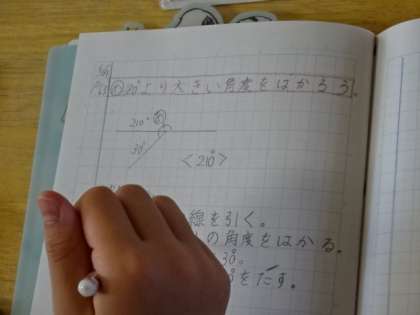 180°より大きい角度をはかろう。
210°
30°
<210°>
線を引く。
の角度をはかる。
30°
をたす。